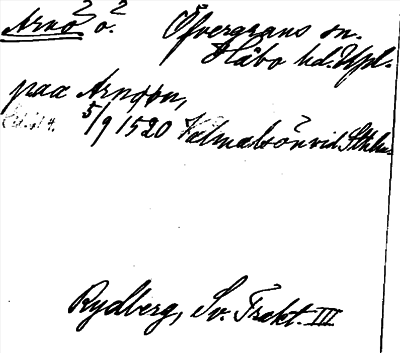 Arnö ö. Öfvergrans sn.
Håbo hd. Upl.
paa Arnöön,
5/9 1520 Valmalsön vid Sthlm.
Rydberg, Sv. Trakt. III